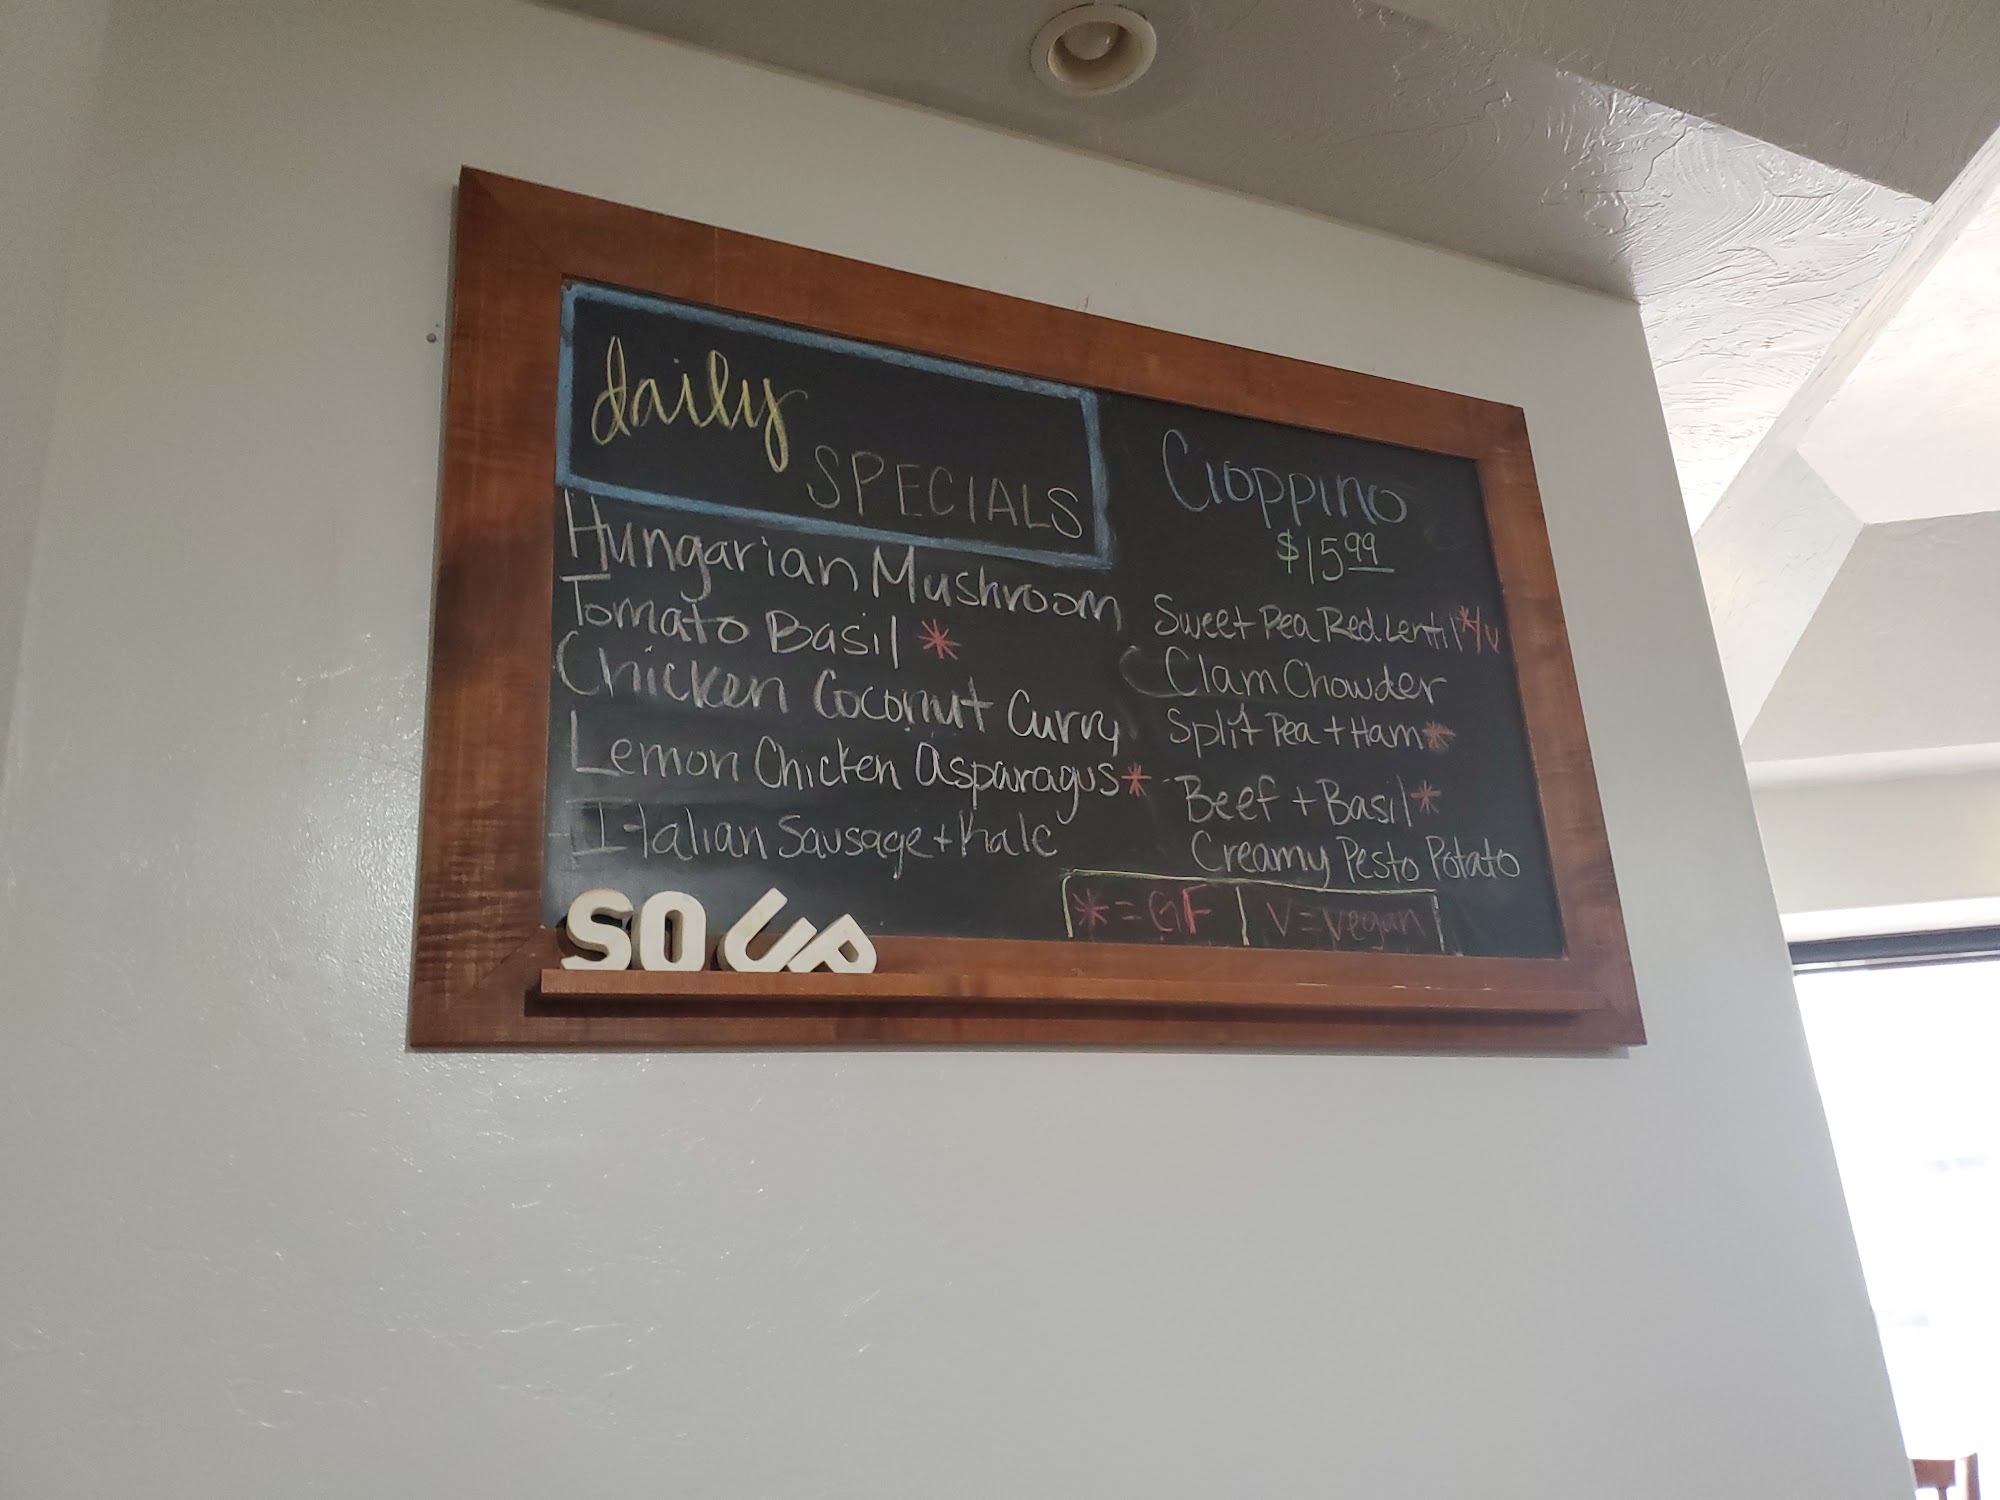 daily
SPECIALS
Hungarian Mushroom
Tomato Basil *
Chicken Coconut Curry
Lemon Chicken Asparagus *
Italian Sausage + Kale
SOUP
Cioppino
$15.99
Sweet Pea Red Lentil */V
Clam Chowder
Split Pea + Ham *
Beef + Basil *
Creamy Pesto Potato
* = GF | V = Vegan